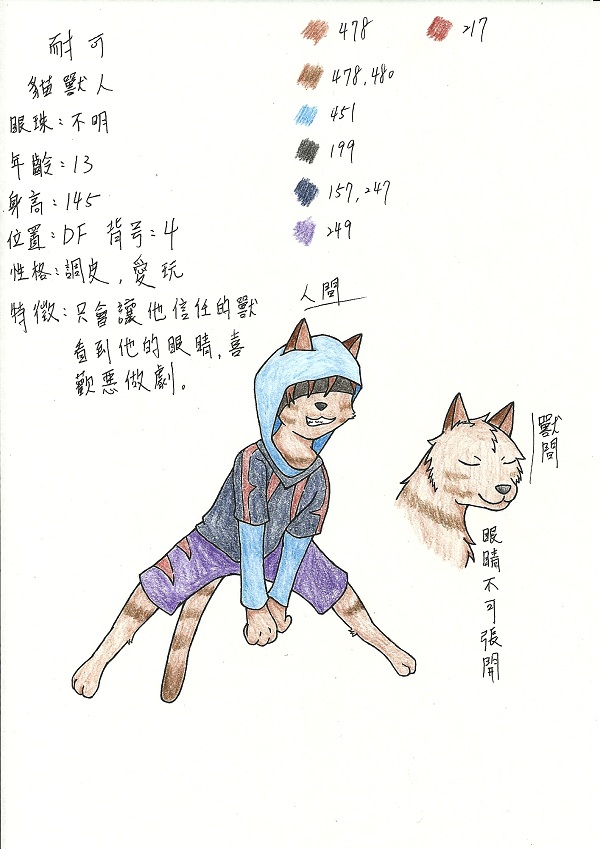 耐可
貓獸人
眼珠：不明
年齡：13
身高：145
位置：DF 背号：4
性格：調皮，愛玩
特徵：只會讓他信任的獸
看到他的眼睛，喜
歡惡做劇。
478
217
478,480
451
199
157,247
249
人間
獸間
眼睛不可張開